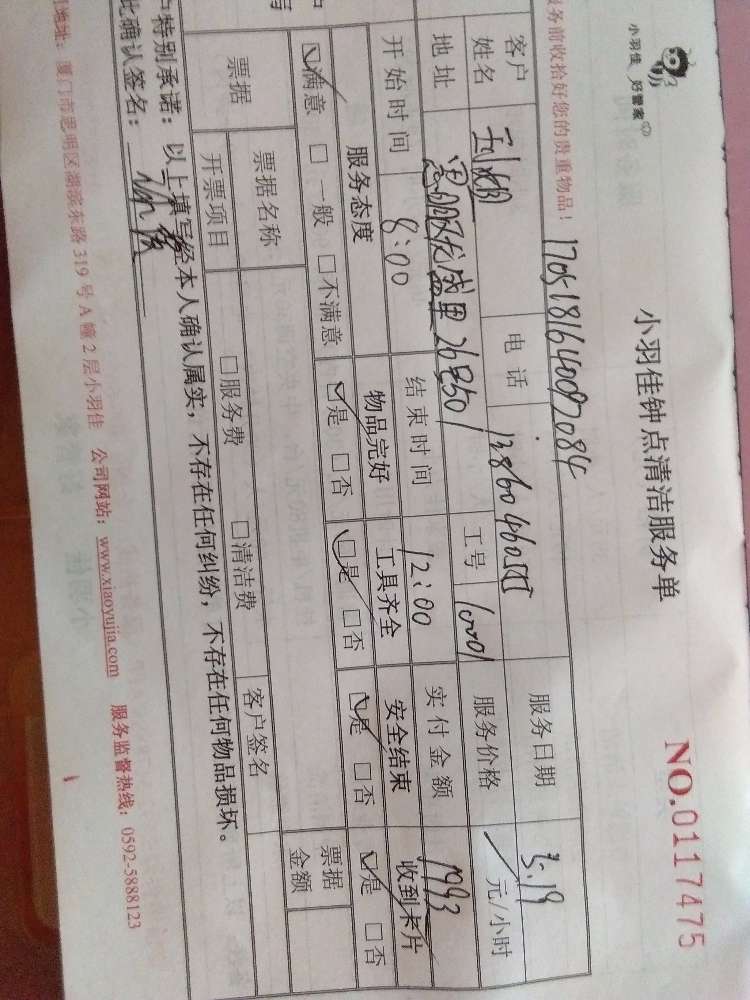 小羽佳 好管家
小羽佳钟点清洁服务单
NO.0117475
务前收拾好您的贵重物品！
客户姓名 电话 服务日期 5.19
地址 26号601 工号 10001 服务价格 元/小时
开始时间 8:00 结束时间 12:00 实付金额 1993
服务态度 物品完好 工具齐全 安全结束 收到卡片
☑满意 □一般 □不满意 ☑是 □否 ☑是 □否 ☑是 □否 ☑是 □否
票据 票据名称 客户签名 票据金额
开票项目 □服务费 □清洁费
特别承诺：以上填写经本人确认属实，不存在任何纠纷，不存在任何物品损坏。
此确认签名：
地址：厦门市思明区湖滨东路319号A幢2层小羽佳 公司网站：www.xiaoyujia.com 服务监督热线：0592-5888123